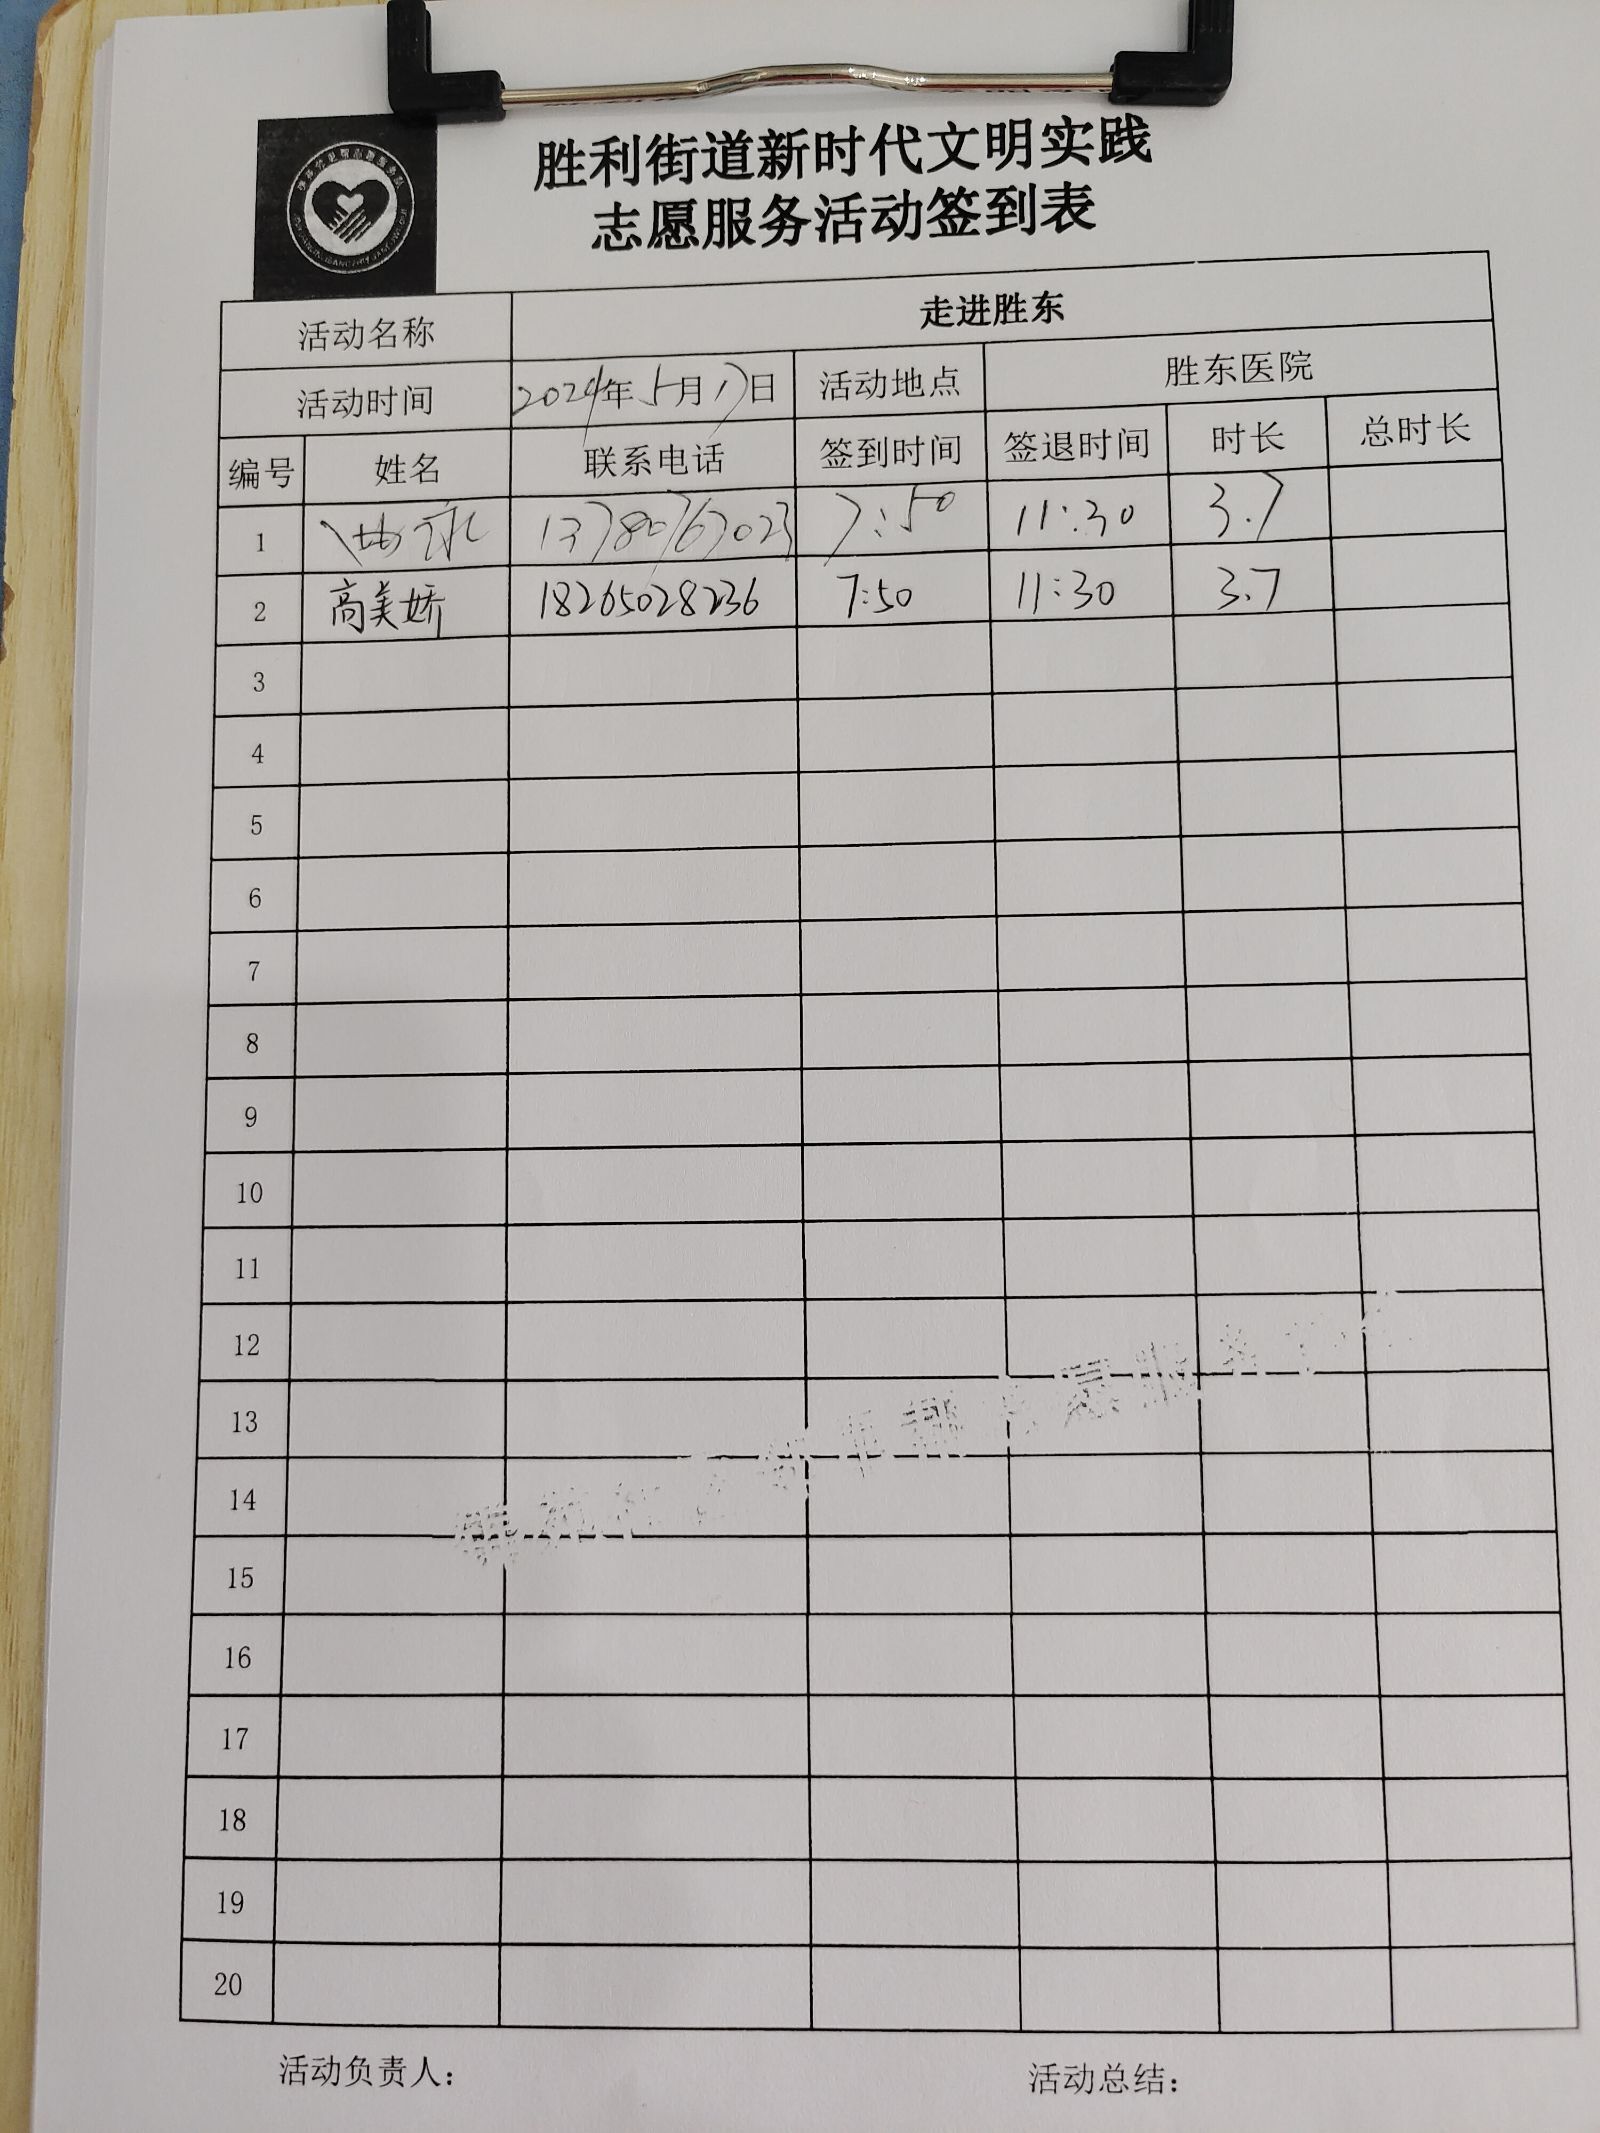 胜利街道新时代文明实践
志愿服务活动签到表
活动名称 走进胜东
活动时间 2024年5月17日 活动地点 胜东医院
编号 姓名 联系电话 签到时间 签退时间 时长 总时长
1 13780767023 7:50 11:30 3.7
2 高美娇 18265028236 7:50 11:30 3.7
3
4
5
6
7
8
9
10
11
12
13
14
15
16
17
18
19
20
活动负责人： 活动总结：